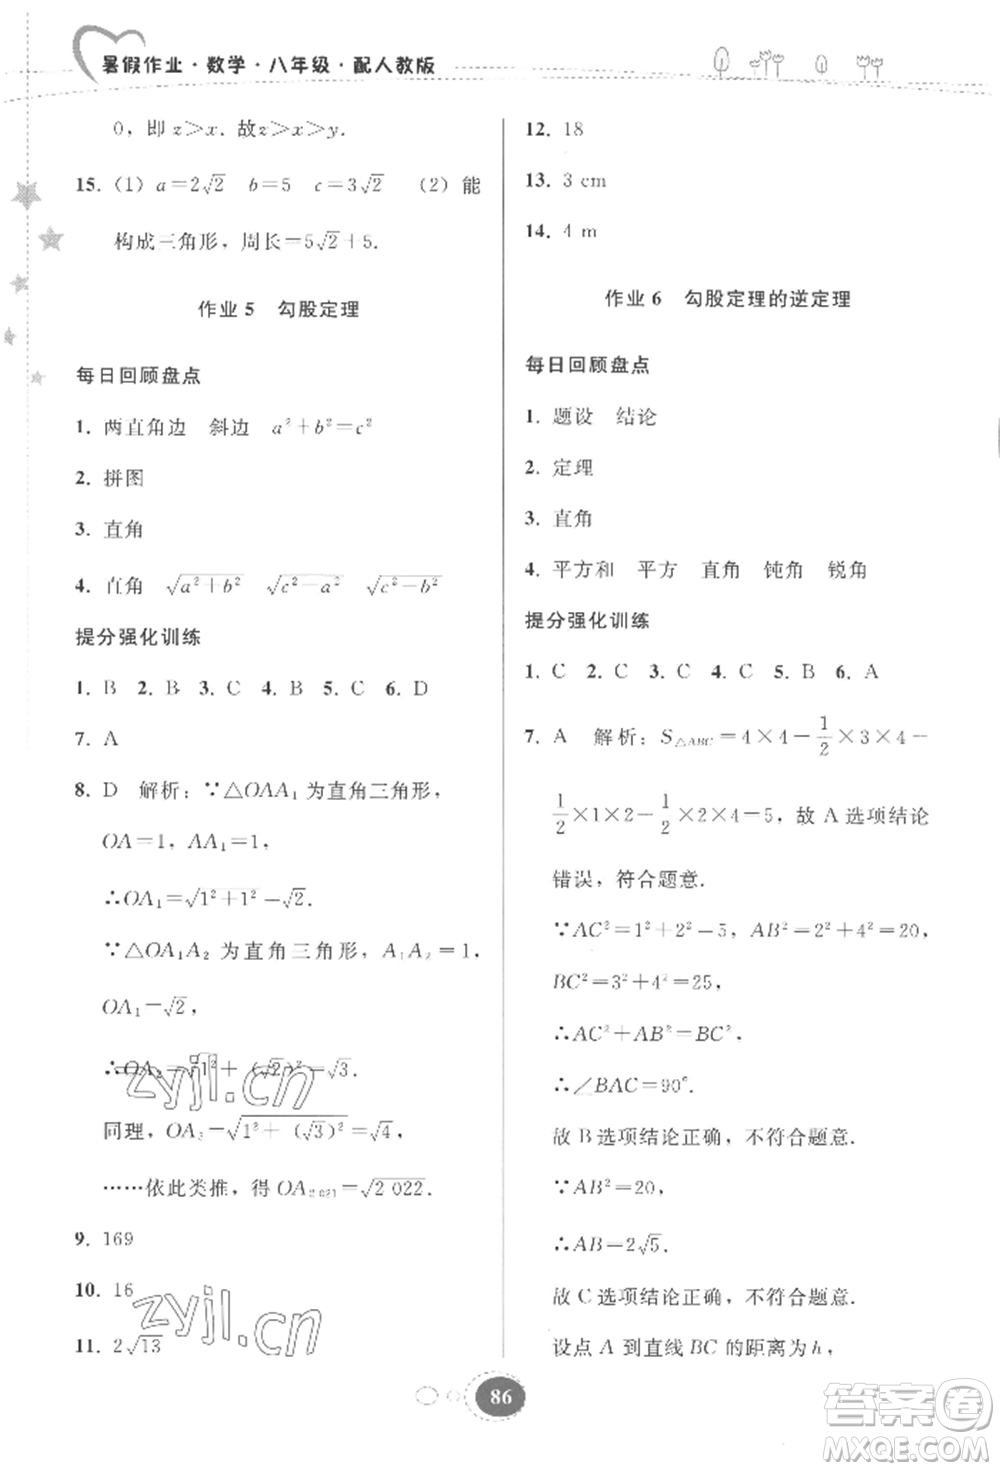 暑假作业·数学·八年级·配人教版
0，即 z＞x．故z＞x＞y．
15. (1) a＝2√2　b＝5　c＝3√2　(2) 能
构成三角形，周长＝5√2＋5．
作业 5　勾股定理
每日回顾盘点
1. 两直角边　斜边　a²＋b²＝c²
2. 拼图
3. 直角
4. 直角　√(a²＋b²)　√(c²－a²)　√(c²－b²)
提分强化训练
1. B　2. B　3. C　4. B　5. C　6. D
7. A
8. D　解析：∵△OAA₁ 为直角三角形，
OA＝1，AA₁＝1，
∴OA₁＝√(1²＋1²)＝√2．
∵△OA₁A₂ 为直角三角形，A₁A₂＝1，
OA₁＝√2，
∴OA₂＝√(1²＋(√2)²)＝√3．
同理，OA₃＝√(1²＋(√3)²)＝√4，
……依此类推，得 OA₂ ₀₂₁＝√(2 022)．
9. 169
10. 16
11. 2√13
12. 18
13. 3 cm
14. 4 m
作业 6　勾股定理的逆定理
每日回顾盘点
1. 题设　结论
2. 定理
3. 直角
4. 平方和　平方　直角　钝角　锐角
提分强化训练
1. C　2. C　3. B　4. C　5. B　6. A
7. A　解析：S△ABC＝4×4－1/2×3×4－
1/2×1×2－1/2×2×4＝5，故 A 选项结论
错误，符合题意．
∵AC²＝1²＋2²＝5，AB²＝2²＋4²＝20，
BC²＝3²＋4²＝25，
∴AC²＋AB²＝BC²．
∴∠BAC＝90°．
故 B 选项结论正确，不符合题意．
∵AB²＝20，
∴AB＝2√5．
故 C 选项结论正确，不符合题意．
设点 A 到直线 BC 的距离为 h，
86
zyjl.cn
zyjl.cn
答案卷
MXQE.COM